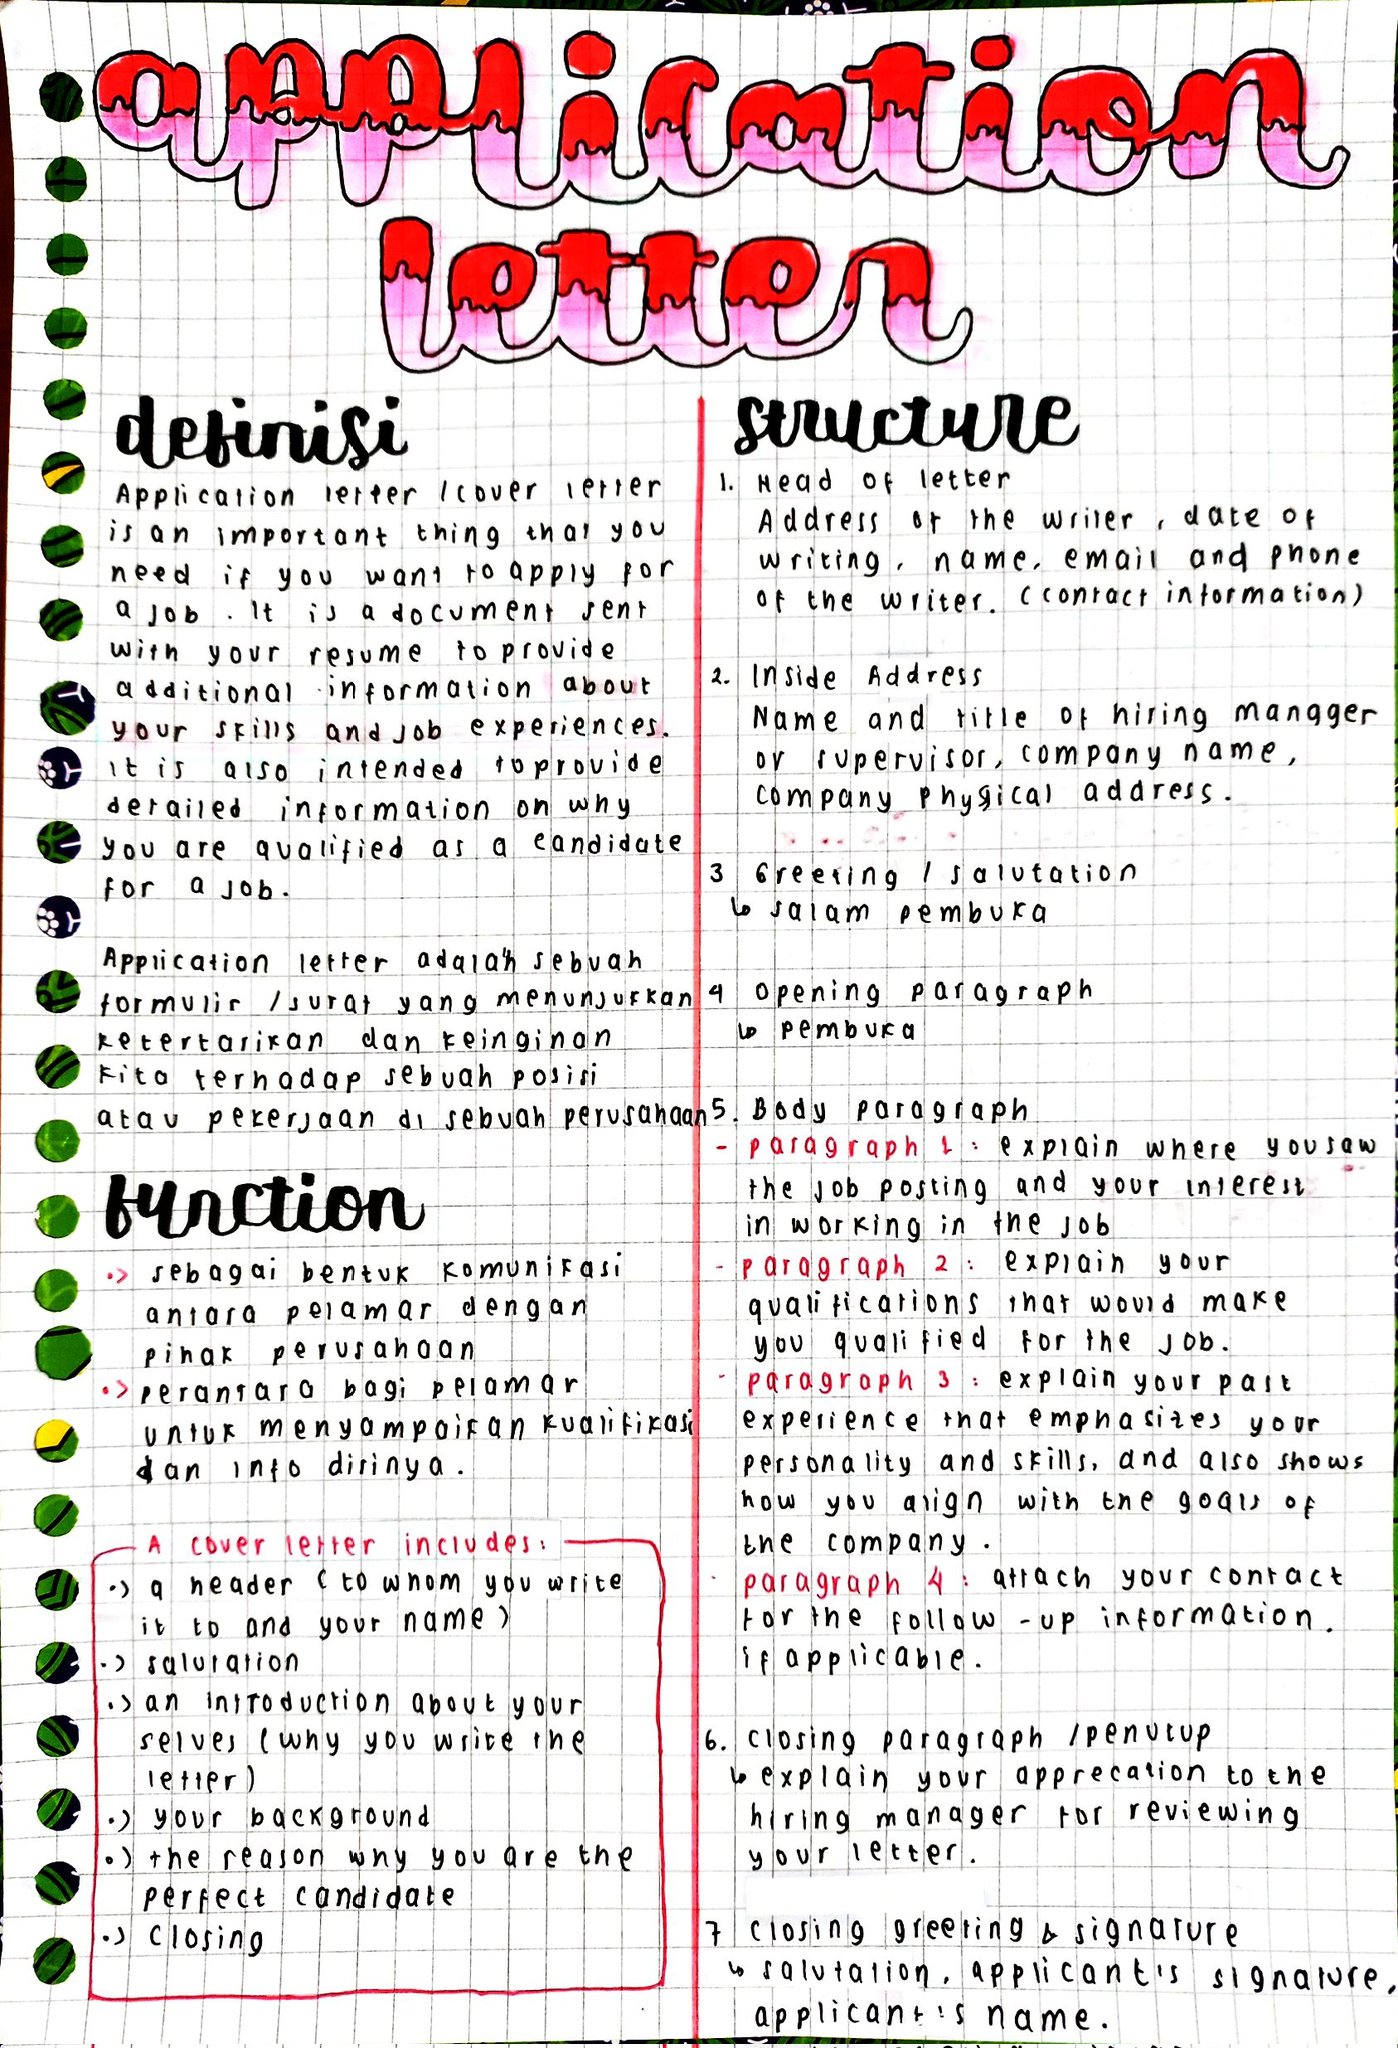 application
letter
definisi
Application letter / cover letter
is an important thing that you
need if you want to apply for
a job. It is a document sent
with your resume to provide
additional information about
your skills and job experiences.
It is also intended to provide
detailed information on why
you are qualified as a candidate
for a job.
Application letter adalah sebuah
formulir / surat yang menunjukkan
ketertarikan dan keinginan
kita terhadap sebuah posisi
atau pekerjaan di sebuah perusahaan
function
•> sebagai bentuk komunikasi
antara pelamar dengan
pihak perusahaan
•> perantara bagi pelamar
untuk menyampaikan kualifikasi
dan info dirinya.
A cover letter includes:
•) a header (to whom you write
it to and your name)
•) salutation
•) an introduction about your
selves (why you write the
letter)
•) your background
•) the reason why you are the
perfect candidate
•) closing
structure
1. Head of letter
Address of the writer, date of
writing, name, email and phone
of the writer. (contact information)
2. Inside Address
Name and title of hiring manager
or supervisor, company name,
company physical address.
3 Greeting / salutation
↳ salam pembuka
4 opening paragraph
↳ pembuka
5. Body paragraph
- paragraph 1 : explain where you saw
the job posting and your interest
in working in the job
- paragraph 2 : explain your
qualifications that would make
you qualified for the job.
- paragraph 3 : explain your past
experience that emphasizes your
personality and skills, and also shows
how you align with the goals of
the company.
- paragraph 4 : attach your contact
for the follow-up information.
if applicable.
6. closing paragraph / penutup
↳ explain your apprecation to the
hiring manager for reviewing
your letter.
7 closing greeting & signature
↳ salutation, applicant's signature,
applicant's name.